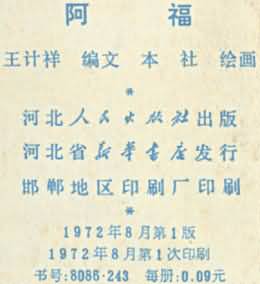 阿 福
王计祥 编文 本 社 绘画
*
河北人民出版社出版
河北省新华书店发行
邯郸地区印刷厂印刷
*
1972年8月第1版
1972年8月第1次印刷
书号:8086·243 每册:0.09元